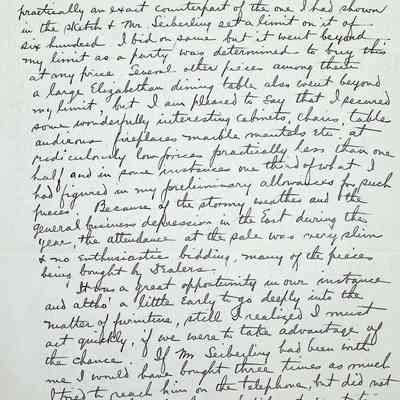 practically an exact counterpart of the one I had shown
in the sketch & Mr. Seiberling set a limit on it of
six hundred. I bid on same but it went beyond
my limit as a party was determined to buy this
at any price. Several other pieces among them
a large Elizabethan dining table also went beyond
my limit, but I am pleased to say that I secured
some wonderfully interesting cabinets, chairs, tables
andirons fireplaces marble mantels etc at
ridiculously low prices practically less than one
half and in some instances one third of what I
had figured in my preliminary allowances for such
pieces. Because of the stormy weather and the
general business depression in the East during the
year, the attendance at the sale was very slim
& no enthusiastic bidding, many of the pieces
being bought by Dealers.
It was a great opportunity in our instance
and altho' a little early to go deeply into the
matter of furniture, still I realized I must
act quickly, if we were to take advantage of
the chance. If Mr Seiberling had been with
me I would have bought three times as much
I tried to reach him on the telephone, but did not